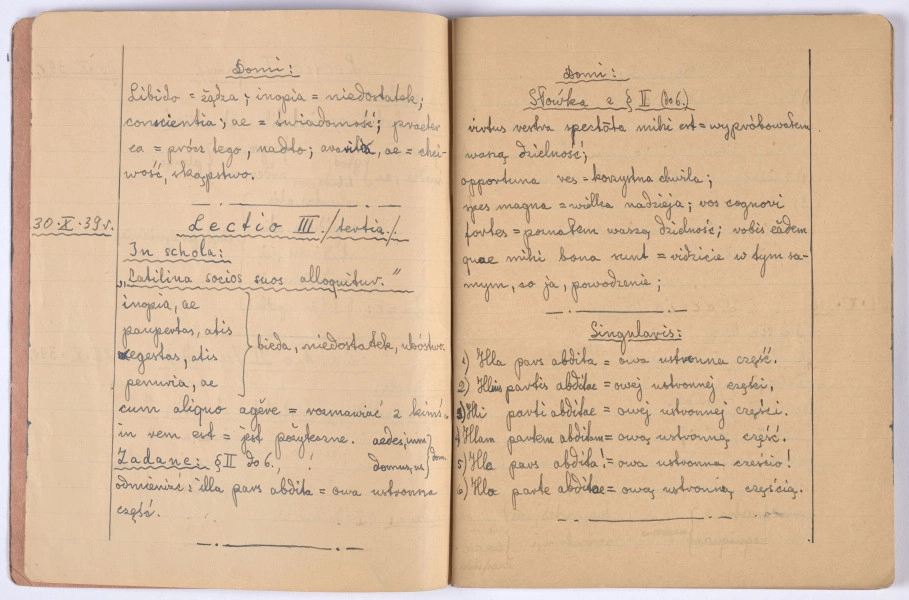 Domi:
Libido = żądza; inopia = niedostatek;
conscientia, ae = świadomość; praeter
ea = prócz tego, nadto; avaritia, ae = chci-
wość, skąpstwo.
30.X.39r.
Lectio III /tertia/.
In schola:
„Catilina socios suos alloquitur."
inopia, ae
paupertas, atis
egestas, atis
penuria, ae
bieda, niedostatek, ubóstwo.
cum aliquo agĕre = rozmawiać z kimś.
in rem est = jest pożyteczne.
aedes, ium
domus, us
dom
Zadane: § II do 6.
odmieniać: illa pars abdita = owa ustronna
część.
Domi:
Słówka z § II (do 6.)
virtus vestra spectāta mihi est = wypróbowałem
waszą dzielność;
opportuna res = korzystna chwila;
spes magna = wielka nadzieja; vos cognovi
fortes = poznałem waszą dzielność; vobis eădem
quae mihi bona sunt = widzicie w tym sa-
mym, co ja, powodzenie;
Singularis:
1) Illa pars abdita = owa ustronna część.
2) Illius partis abditae = owej ustronnej części.
3) Illi parti abditae = owej ustronnej części.
4) Illam partem abditam = ową ustronną część.
5) Illa pars abdita! = owa ustronna cześcio!
6) Illa parte abditae = ową ustronną częścią.